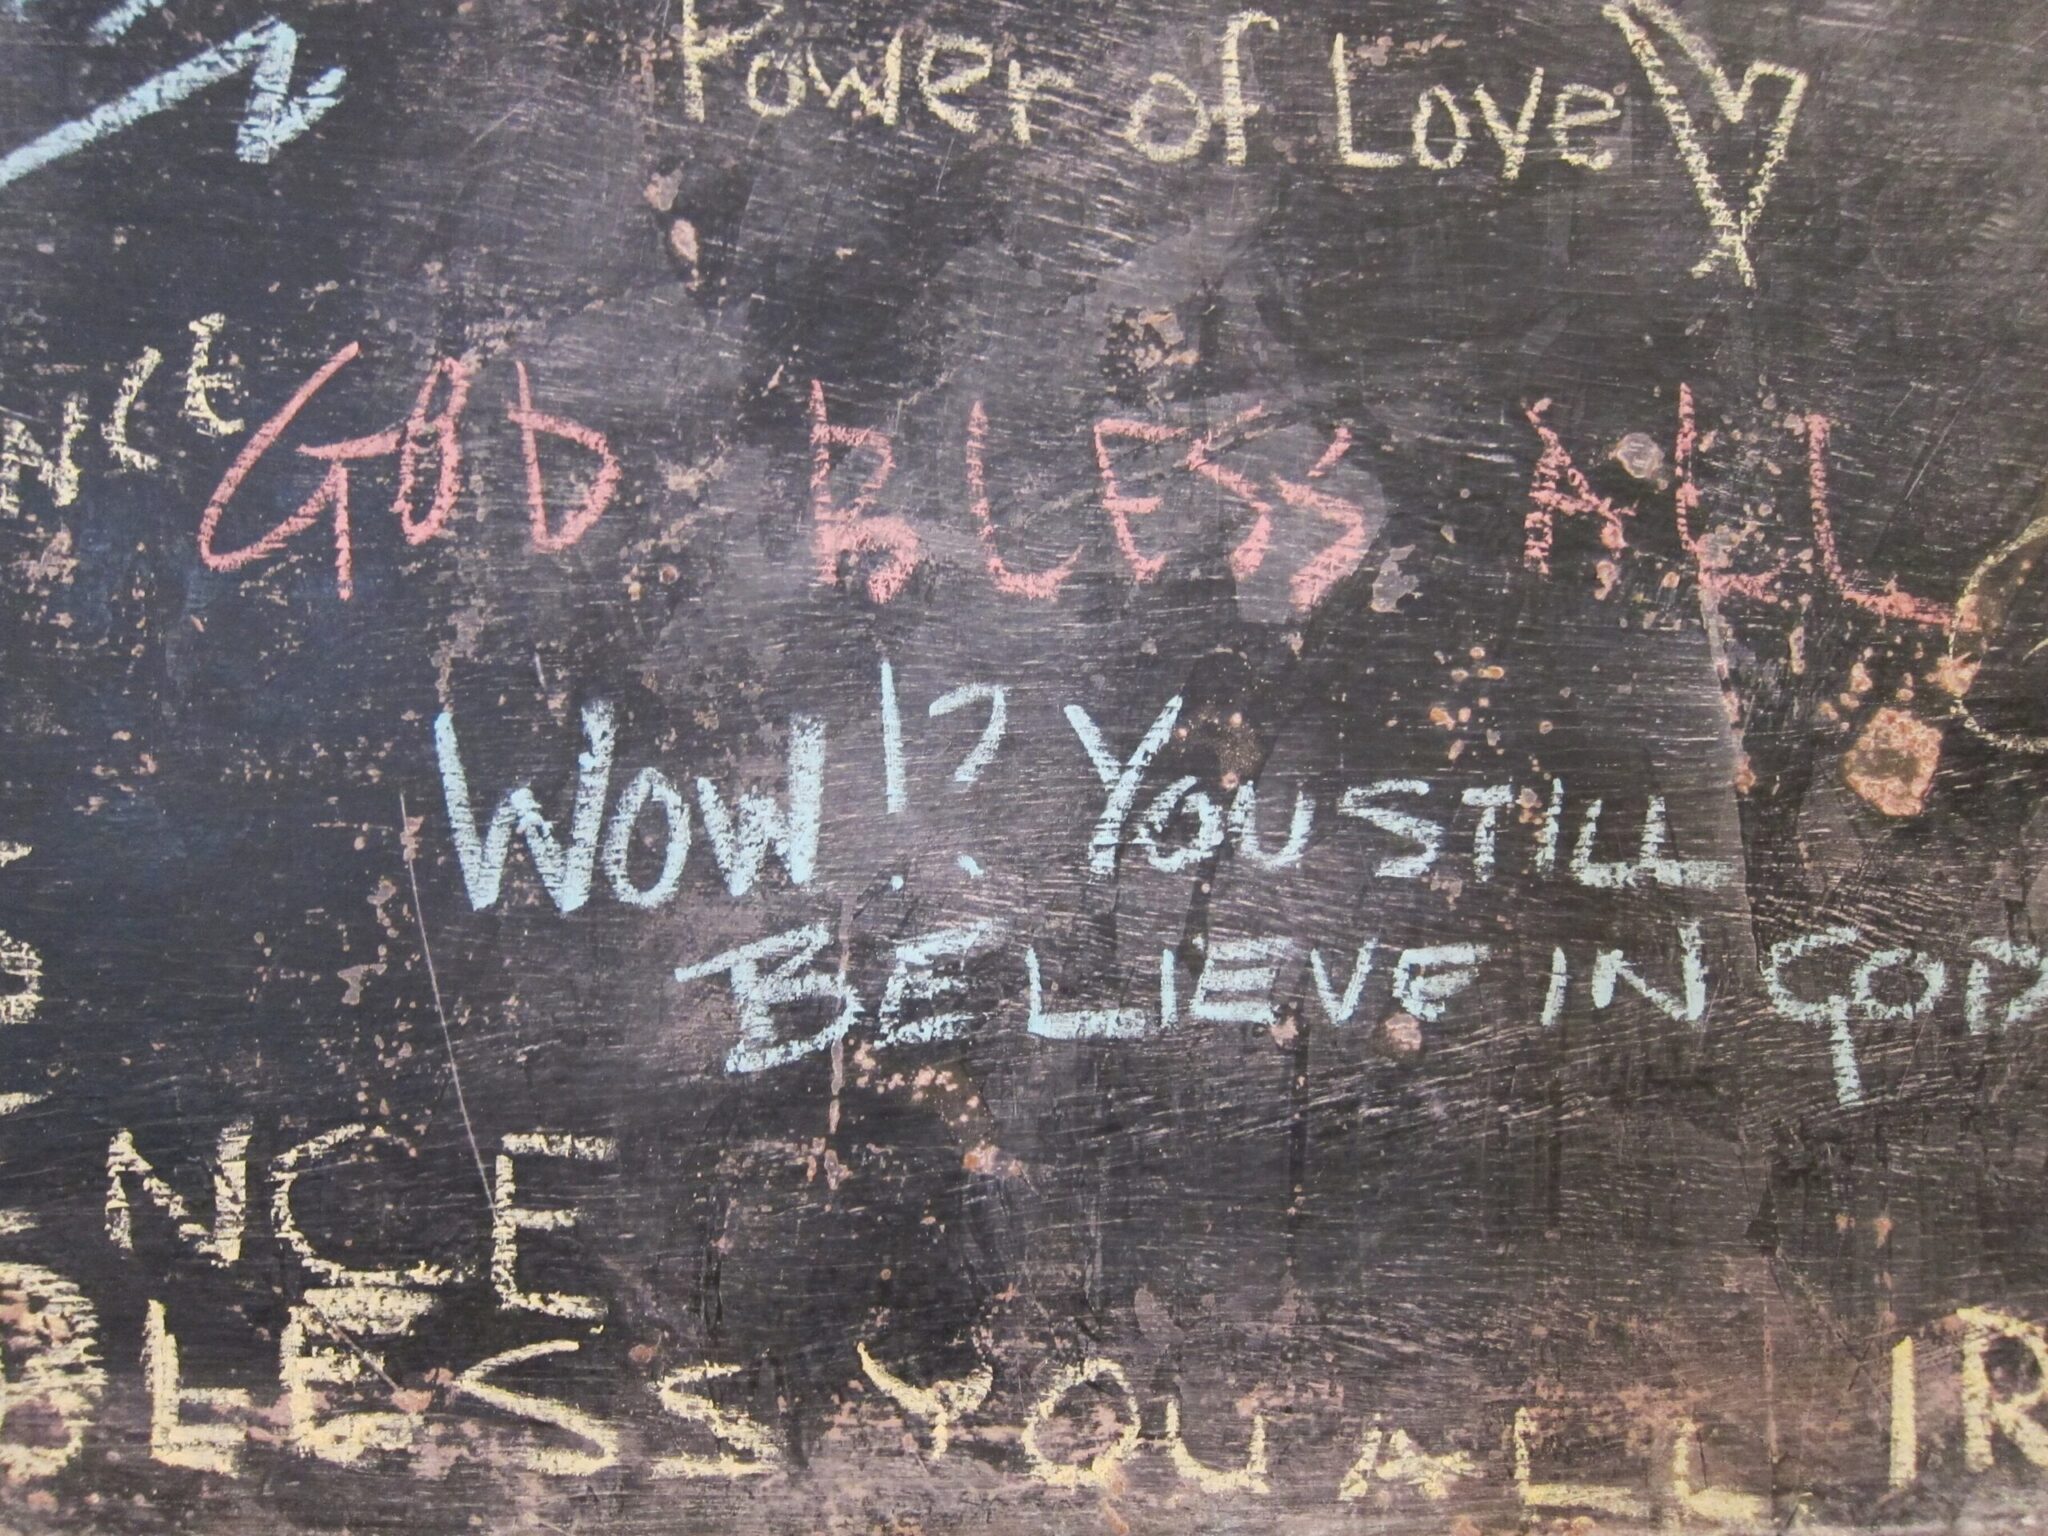 Power of Love
NCE
GOD BLESS ALL
WOW!? YOU STILL
BELIEVE IN GOD
NCE
BLESS YOU ALL IR